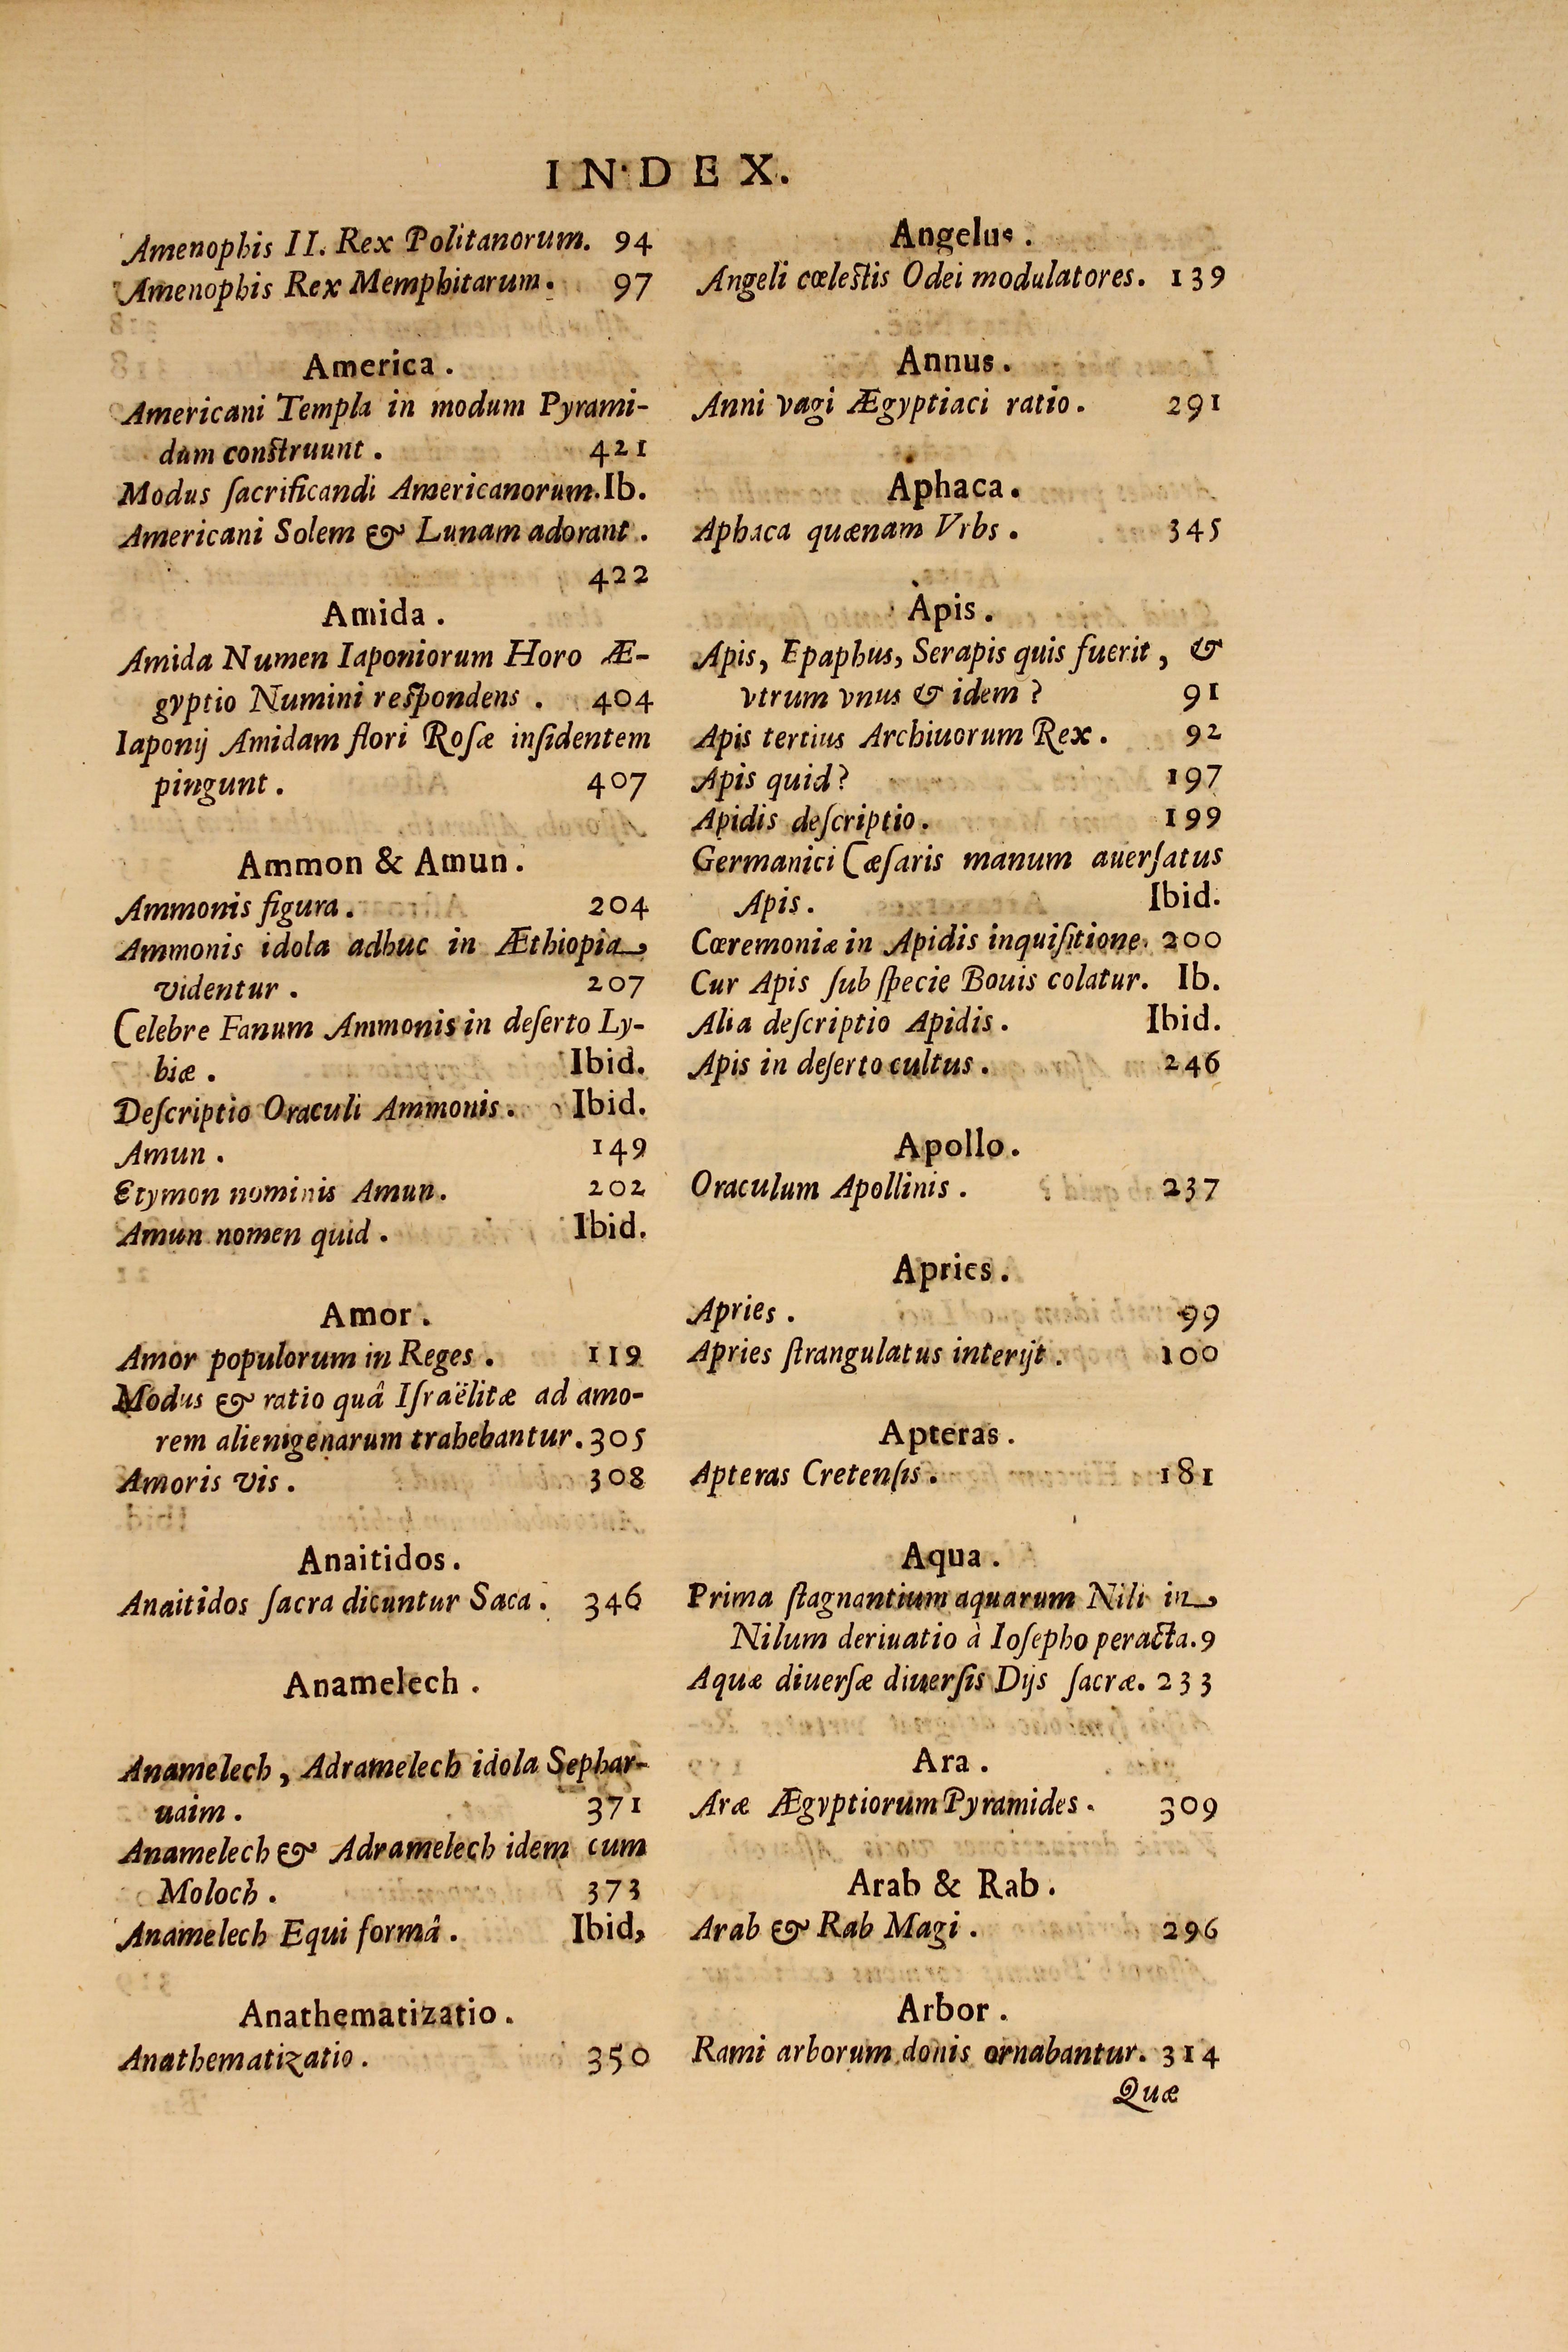 INDEX.
Amenophis II. Rex Politanorum. 94
Amenophis Rex Memphitarum. 97
America.
Americani Templa in modum Pyrami-
dum construunt. 421
Modus ſacrificandi Americanorum. Ib.
Americani Solem & Lunam adorant.
422
Amida.
Amida Numen Iaponiorum Horo Æ-
gyptio Numini respondens. 404
Iaponij Amidam flori Roſæ inſidentem
pingunt. 407
Ammon & Amun.
Ammonis figura. 204
Ammonis idola adhuc in Æthiopia
videntur. 207
Celebre Fanum Ammonis in deſerto Ly-
biæ. Ibid.
Deſcriptio Oraculi Ammonis. Ibid.
Amun. 149
Etymon nominis Amun. 202
Amun nomen quid. Ibid.
Amor.
Amor populorum in Reges. 119
Modus & ratio quâ Iſraëlitæ ad amo-
rem alienigenarum trahebantur. 305
Amoris vis. 308
Anaitidos.
Anaitidos ſacra dicuntur Saca. 346
Anamelech.
Anamelech, Adramelech idola Sephar-
uaim. 371
Anamelech & Adramelech idem cum
Moloch. 373
Anamelech Equi formâ. Ibid,
Anathematizatio.
Anathematizatio. 350
Angelus.
Angeli cœlestis Odei modulatores. 139
Annus.
Anni vagi Ægyptiaci ratio. 291
Aphaca.
Aphaca quænam Vrbs. 345
Apis.
Apis, Epaphus, Serapis quis fuerit, &
vtrum vnus & idem? 91
Apis tertius Archiuorum Rex. 92
Apis quid? 197
Apidis deſcriptio. 199
Germanici Cæſaris manum auerſatus
Apis. Ibid.
Cœremoniæ in Apidis inquiſitione. 200
Cur Apis ſub ſpecie Bouis colatur. Ib.
Alia deſcriptio Apidis. Ibid.
Apis in deſerto cultus. 246
Apollo.
Oraculum Apollinis. 237
Apries.
Apries. 99
Apries ſtrangulatus interijt. 100
Apteras.
Apteras Cretenſis. 181
Aqua.
Prima ſtagnantium aquarum Nili in
Nilum deriuatio à Ioſepho peracta. 9
Aquæ diuerſæ diuerſis Dijs ſacræ. 233
Ara.
Aræ Ægyptiorum Pyramides. 309
Arab & Rab.
Arab & Rab Magi. 296
Arbor.
Rami arborum donis ornabantur. 314
Quæ